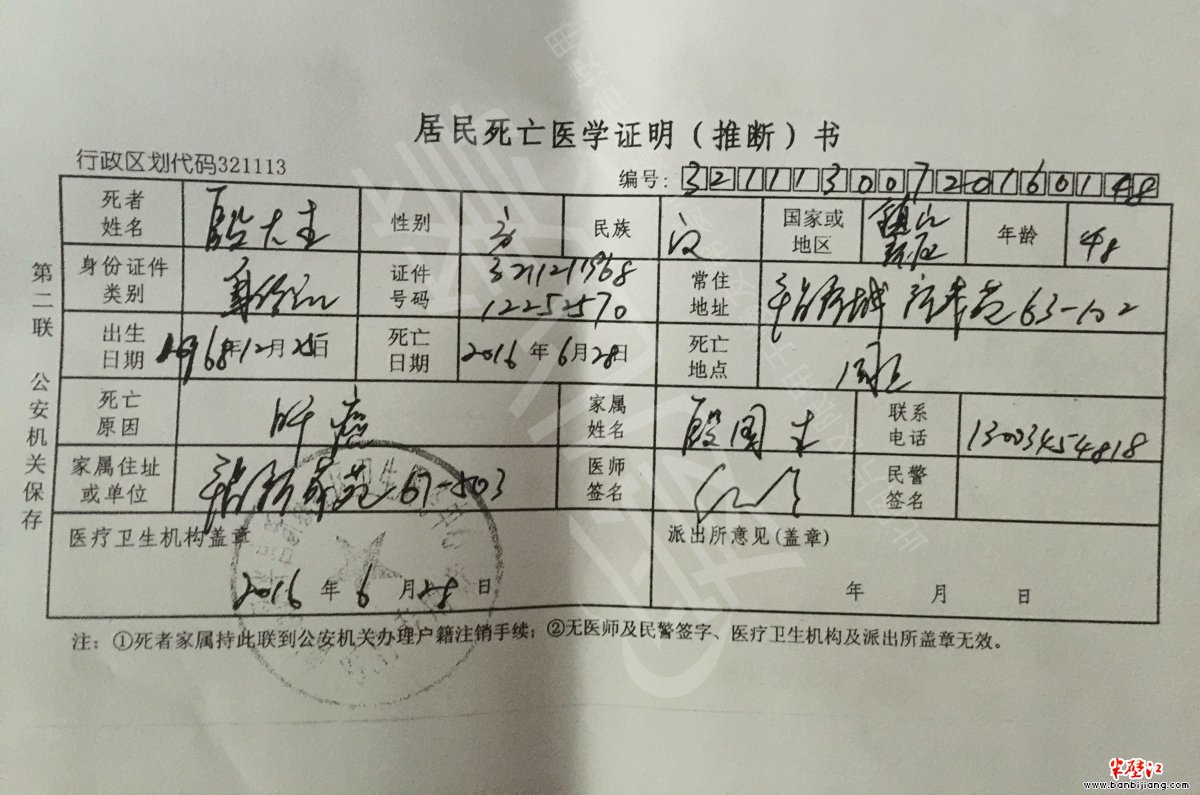 居民死亡医学证明（推断）书
行政区划代码321113
编号：32111300720160148
死者姓名 殷大生 性别 男 民族 汉 国家或地区 年龄 48
身份证件类别 身份证 证件号码 321121196812252570 常住地址 63-102
出生日期 1968年12月25日 死亡日期 2016年6月28日 死亡地点 家庭
死亡原因 肝癌 家属姓名 殷国生 联系电话 13003454818
家属住址或单位 67-503 医师签名 民警签名
医疗卫生机构盖章 派出所意见(盖章)
2016年6月28日 年 月 日
注：①死者家属持此联到公安机关办理户籍注销手续；②无医师及民警签字、医疗卫生机构及派出所盖章无效。
第二联 公安机关保存
半壁江
www.banbijiang.com